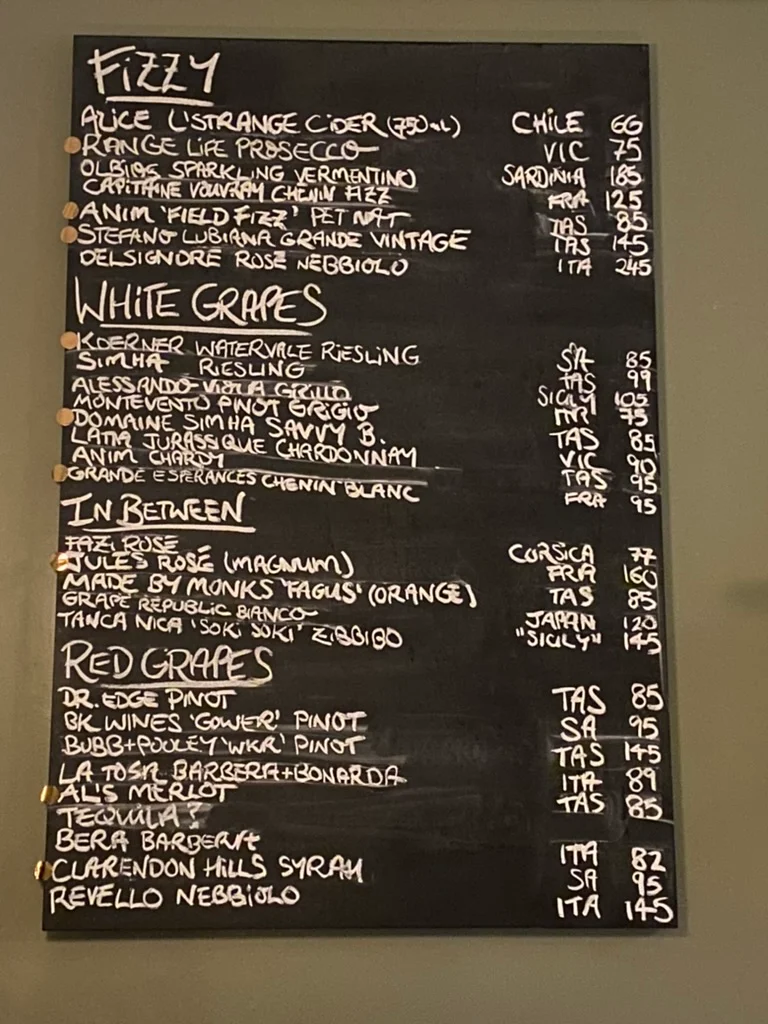 FIZZY
ALICE L'STRANGE CIDER (750mL) CHILE 66
RANGE LIFE PROSECCO VIC 75
OLBIOS SPARKLING VERMENTINO SARDINIA 185
CAPITAINE VOUVRAY CHENIN FIZZ FRA 125
ANIM 'FIELD FIZZ' PET NAT TAS 85
STEFANO LUBIANA GRANDE VINTAGE TAS 145
DELSIGNORE ROSE NEBBIOLO ITA 245
WHITE GRAPES
KOERNER WATERVALE RIESLING SA 85
SIMHA RIESLING TAS 99
ALESSANDO VIOLA GRILLO SICILY 105
MONTEVENTO PINOT GRIGIO ITA 75
DOMAINE SIMHA SAVVY B. TAS 85
LATTA JURASSIQUE CHARDONNAY VIC 90
ANIM CHARDY TAS 95
GRANDE ESPERANCES CHENIN BLANC FRA 95
IN BETWEEN
FAZI ROSE CORSICA 77
JULES ROSÉ (MAGNUM) FRA 160
MADE BY MONKS 'FAGUS' (ORANGE) TAS 85
GRAPE REPUBLIC BIANCO JAPAN 120
TANCA NICA 'SOKI SOKI' ZIBBIBO "SICILY" 145
RED GRAPES
DR. EDGE PINOT TAS 85
BK WINES 'GOWER' PINOT SA 95
BUBB+POOLEY 'WKR' PINOT TAS 145
LA TOSA BARBERA+BONARDA ITA 89
AL'S MERLOT TAS 85
TEQUILA?
BERA BARBERA ITA 82
CLARENDON HILLS SYRAH SA 95
REVELLO NEBBIOLO ITA 145